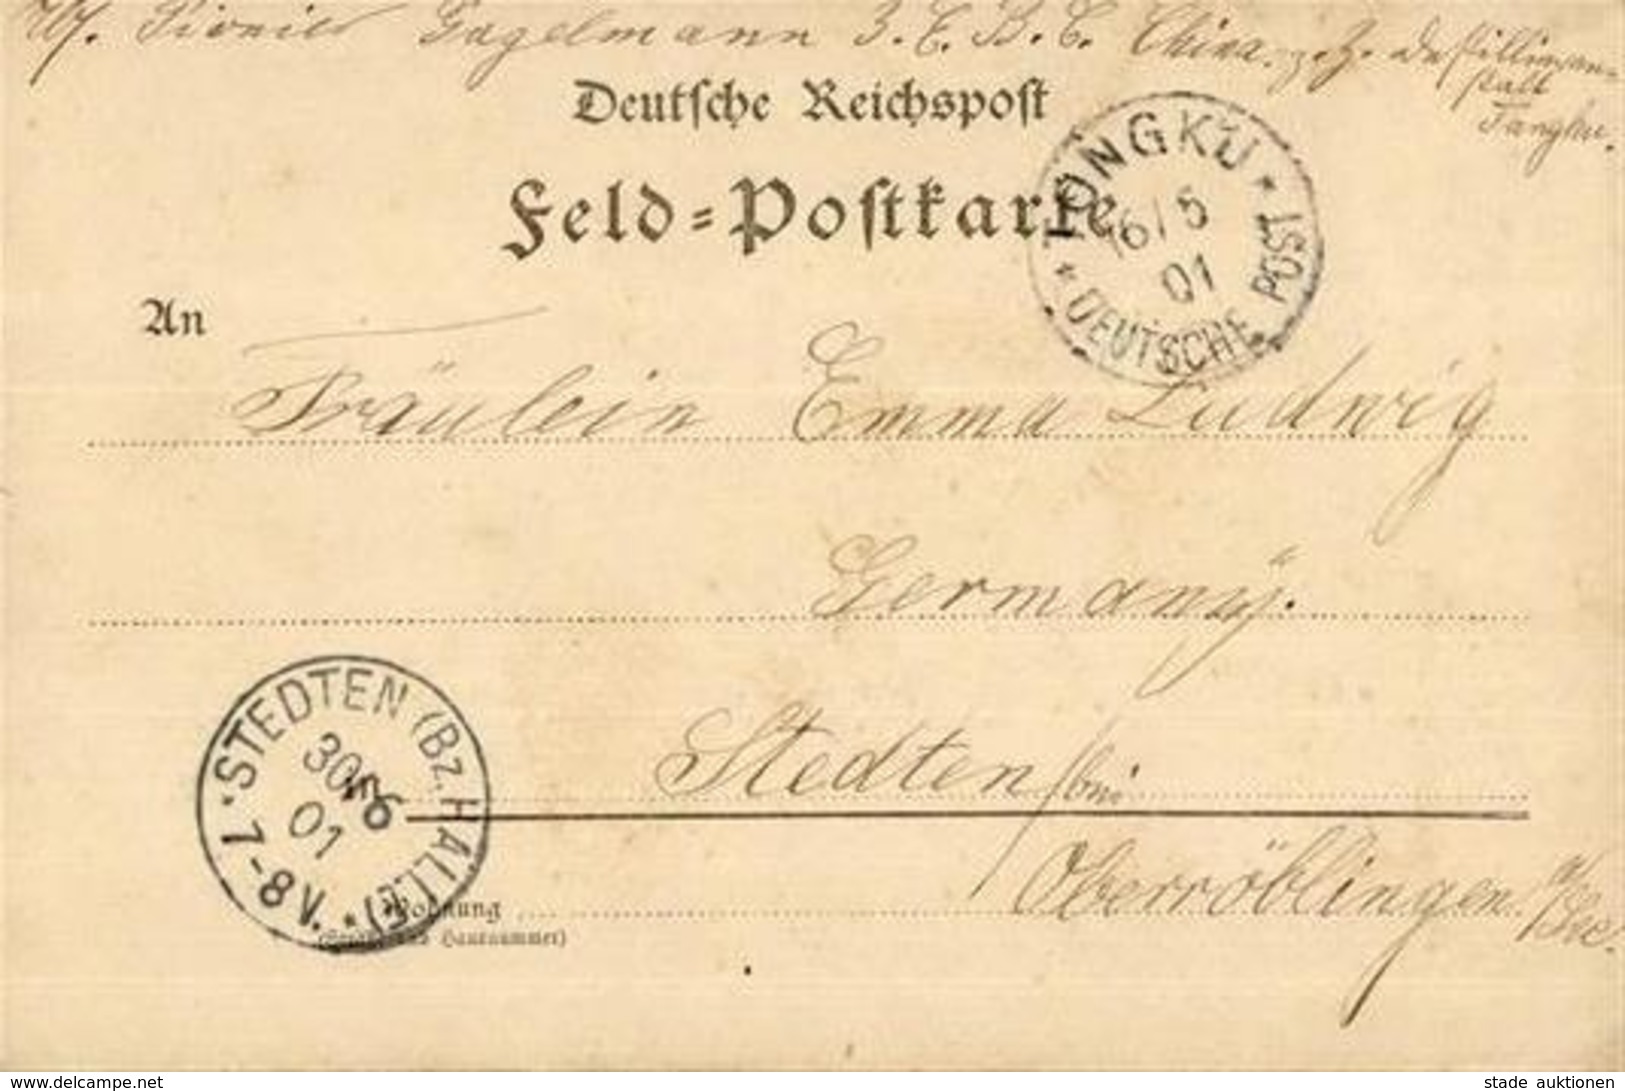 Pionier Gagelmann 3. C. B. C. China. z. Z. Destilliran-
stalt
Tangku.
Deutsche Reichspost
Feld-Postkarte
TONGKU
16/5
01
* DEUTSCHE POST *
An
Fräulein Emma Ludwig
Germany.
Stedten bei
Oberröblingen a/See.
STEDTEN (Bz. HALLE)
30/6
01
7-8V.
Wohnung
(Straße und Hausnummer)
www.delcampe.net
stade auktionen